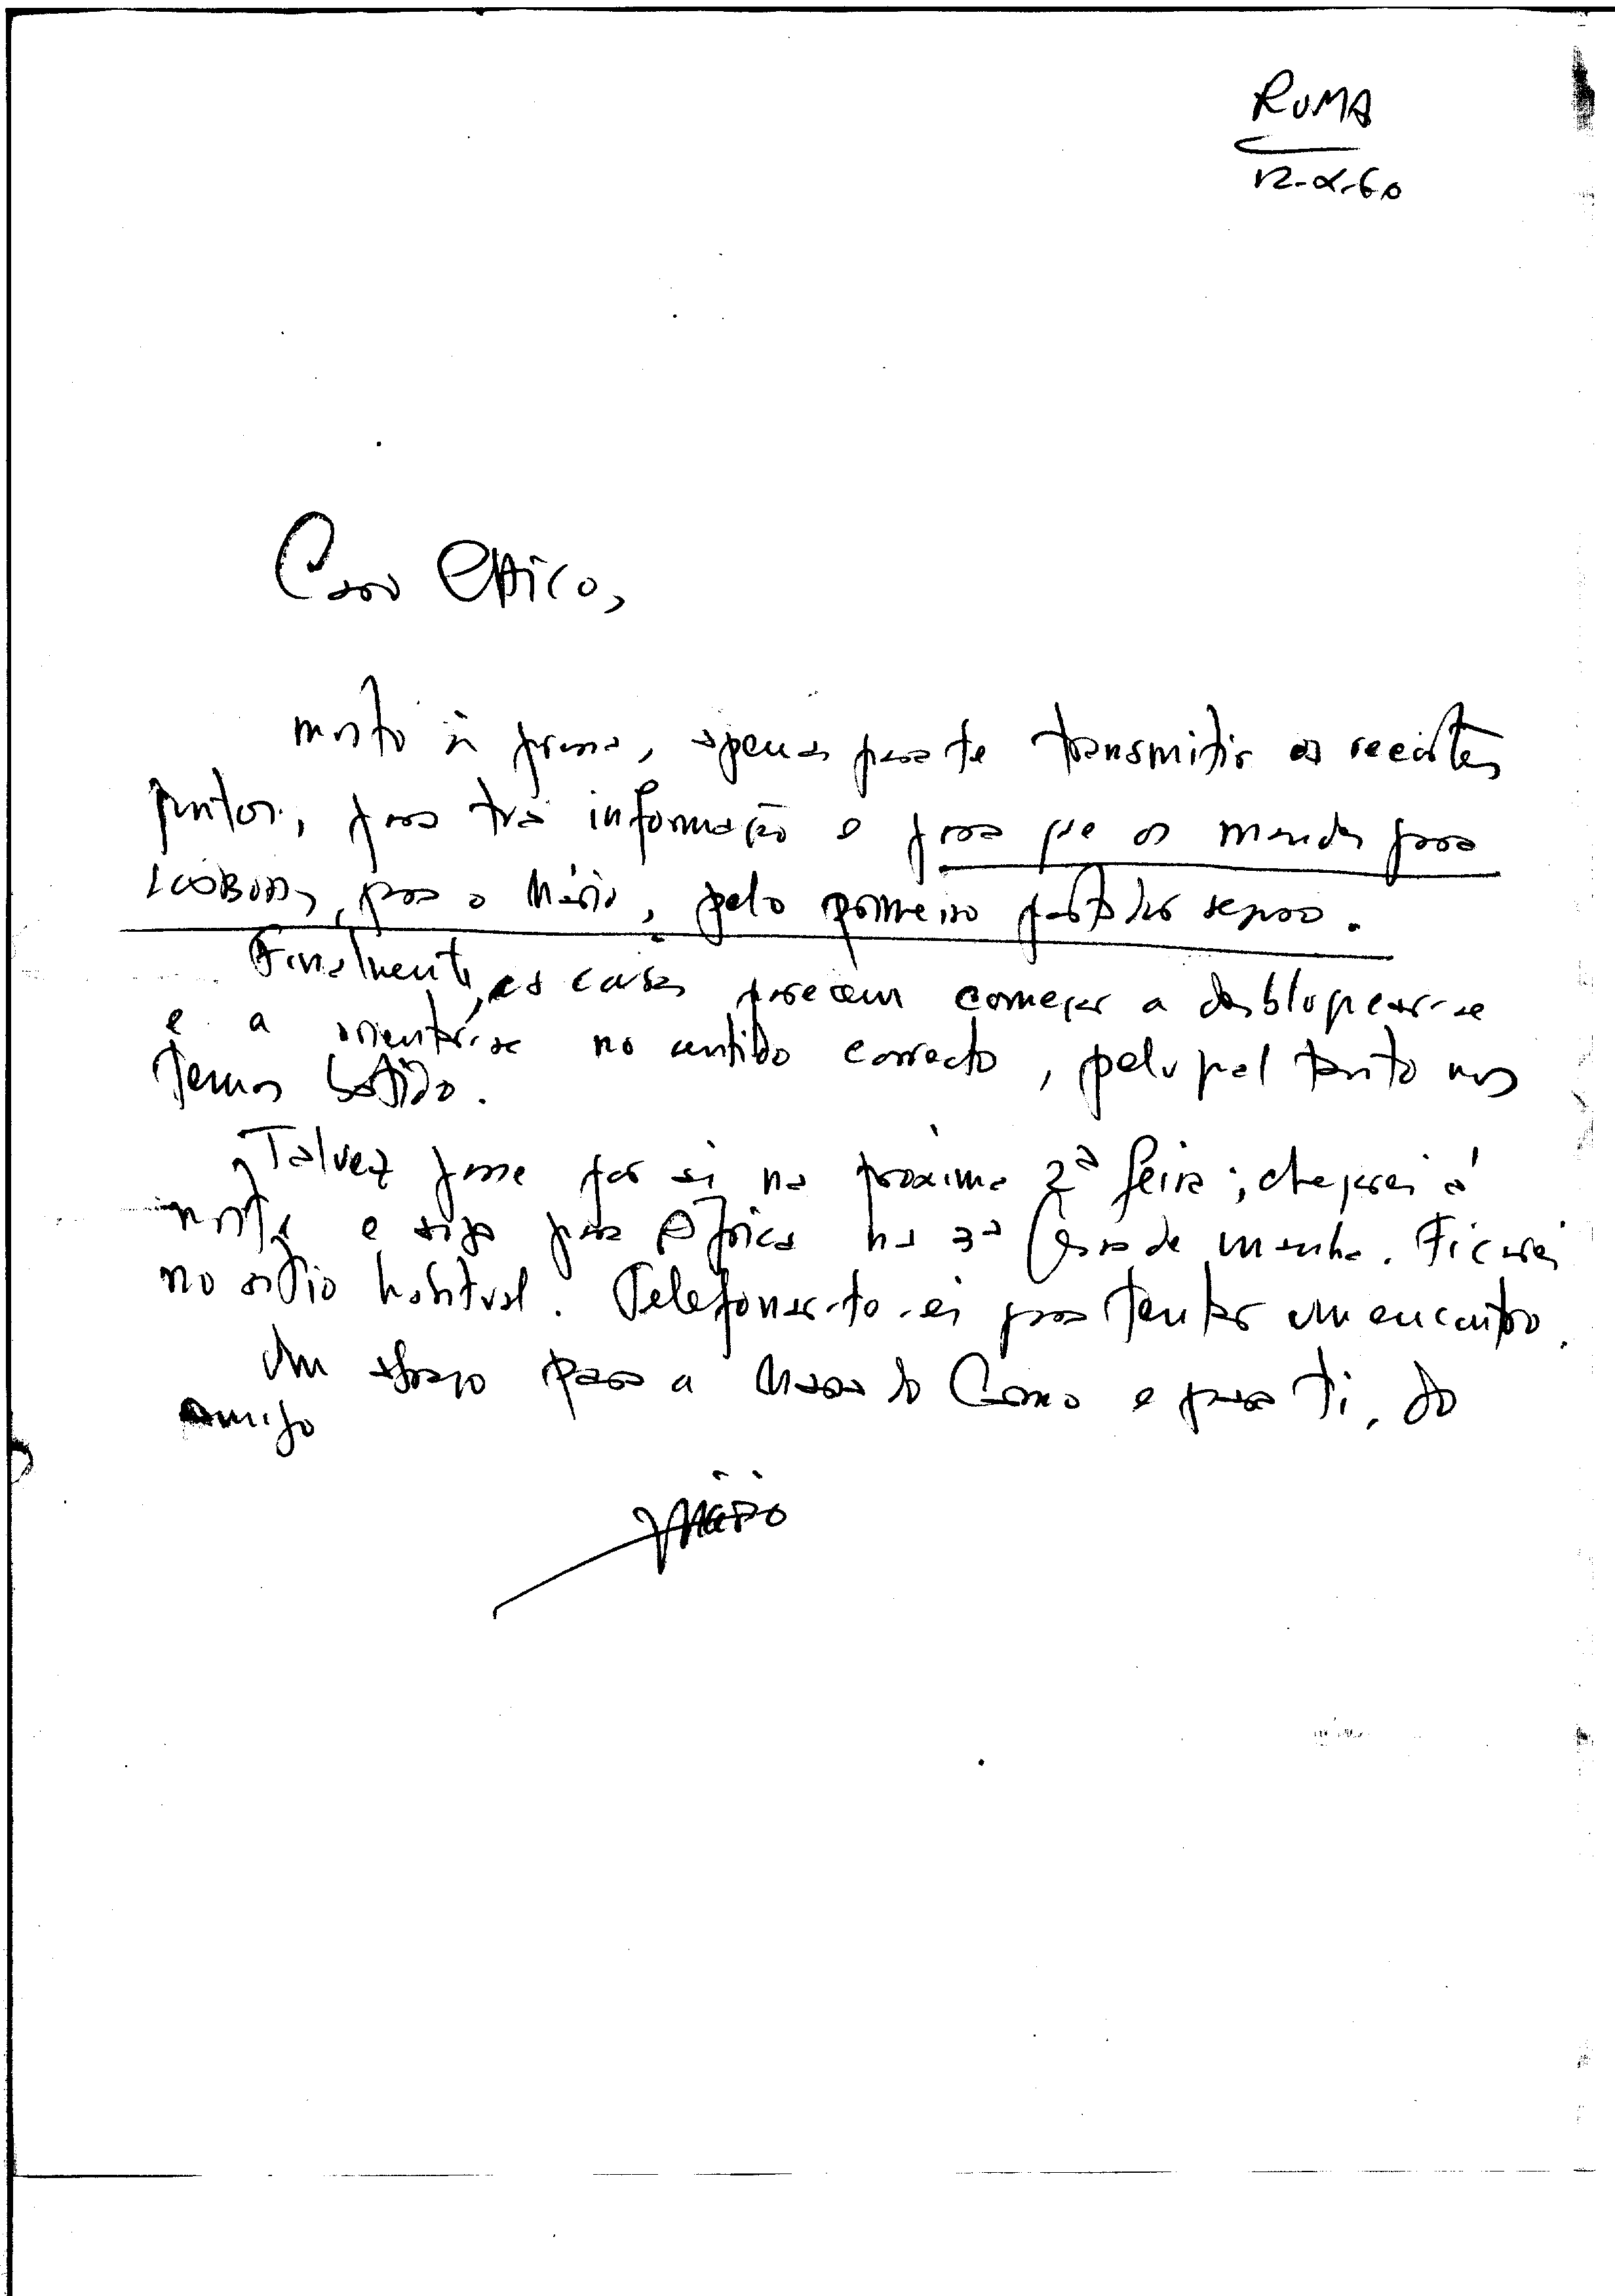 ROMA
12-X-60
Caro Chico,
muito à pressa, apenas para te transmitir os recortes
juntos, para tua informação e para que os mandes para
LISBOA, para o Mário, pelo primeiro portador seguro.
Finalmente, as coisas parecem começar a desbloquear-se
e a orientar-se no sentido correcto, pelo qual tanto nos
temos batido.
Talvez passe por aí na próxima 2ª feira; chegarei à
noite e sigo para África na 3ª feira de manhã. Ficarei
no sítio habitual. Telefonar-te-ei para tentar um encontro.
Um abraço para a Maria do Carmo e para ti, do
amigo
Mário